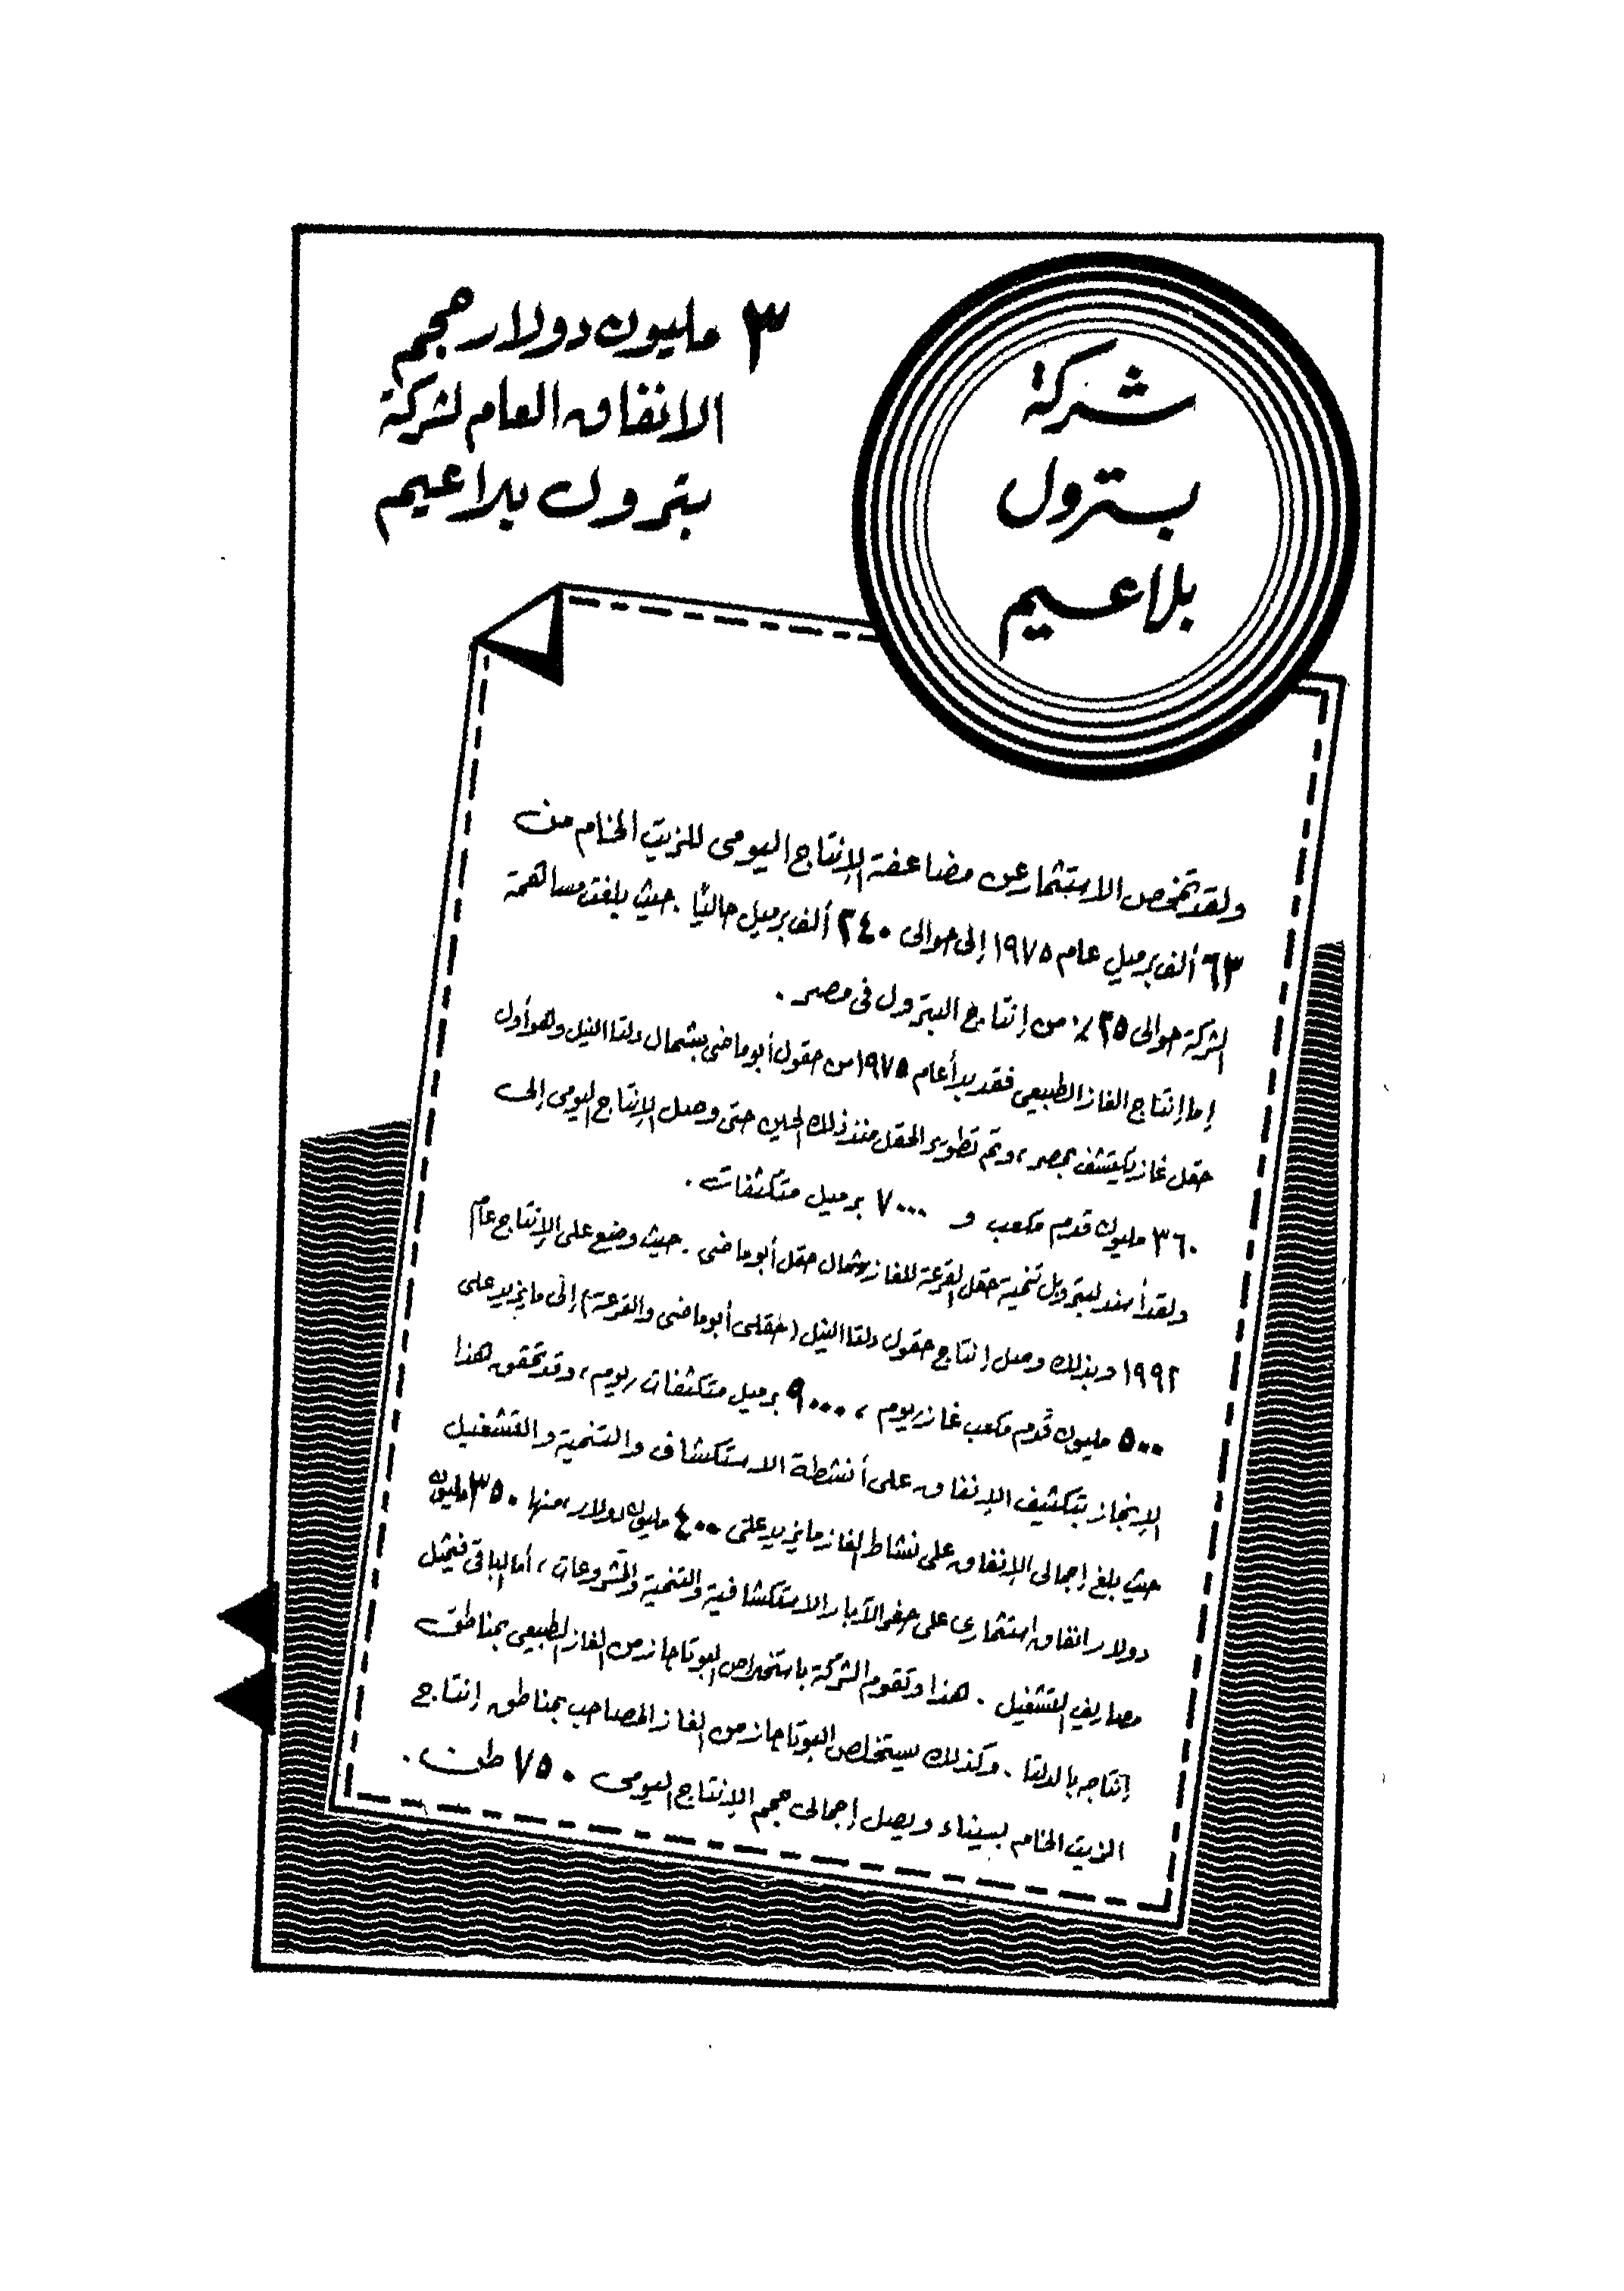 شركة
بترول
بلاعيم
٣ مليون دولار حجم
الانفاق العام لشركة
بترول بلاعيم
ولقد تمخص الاستثمار عن مضاعفة الإنتاج اليومى للزيت الخام من
٦٣ ألف برميل عام ١٩٧٥ إلى حوالى ٢٤٠ ألف برميل حاليًا . حيث بلغت مساهمة
الشركة حوالى ٢٥٪ من إنتاج البترول فى مصر .
إما إنتاج الغاز الطبيعى فقد بدأ عام ١٩٧٥ من حقول أبو ماضى بشمال دلتا النيل وهو أول
حقل غاز يكتشف بمصر ، وتم تطوير الحقل منذ ذلك الحين حتى وصل الإنتاج اليومى إلى
٣٦٠ مليون قدم مكعب و ٧٠٠٠ برميل متكثفات .
ولقد أسند لبتروبل تنمية حقل القرعة للغاز شمال حقل أبو ماضى . حيث وضع على الإنتاج عام
١٩٩٢ وبذلك وصل إنتاج حقول دلتا النيل (حقلى أبو ماضى والقرعة) إلى ما يزيد على
٥٠٠ مليون قدم مكعب غاز ريوم ، ٩٠٠٠ برميل متكثفات ريوم ، وقد تحقق هذا
الإنجاز بتكثيف الإنفاق على أنشطة الاستكشاف والتنمية والتشغيل
حيث بلغ إجمالى الإنفاق على نشاط الغاز ما يزيد على ٤٠٠ مليون دولار ، منها ٣٥٠ مليون
دولار انفاق استثمارى على حفر الآبار الاستكشافية والتنمية والمشروعات ، أما الباقى فيمثل
مصاريف التشغيل . هذا وتقوم الشركة باستخلاص البوتاجاز من الغاز الطبيعى بمناطق
إنتاجه بالدلتا . وكذلك سيتخلص البوتاجاز من الغاز المصاحب بمناطق إنتاج
الزيت الخام بسيناء ويصل إجمالى حجم الإنتاج اليومى ٧٥٠ طن .